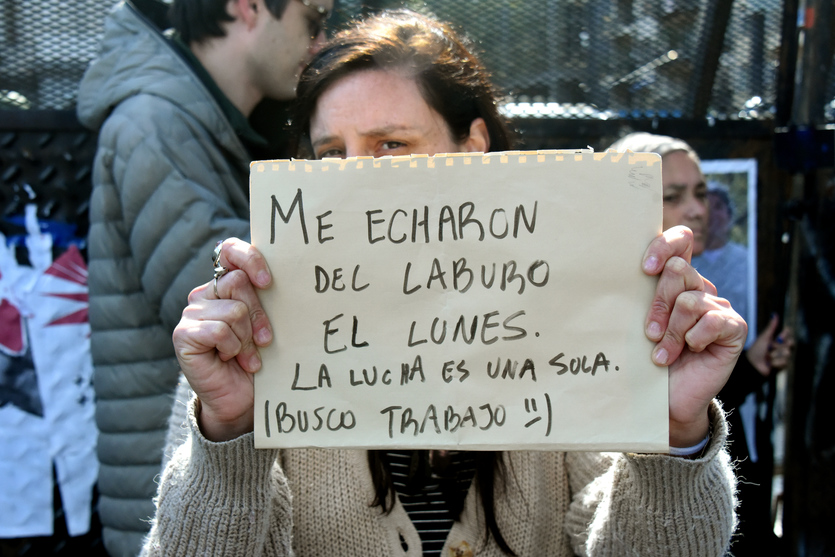 ME ECHARON
DEL LABURO
EL LUNES.
LA LUCHA ES UNA SOLA.
(BUSCO TRABAJO !!)